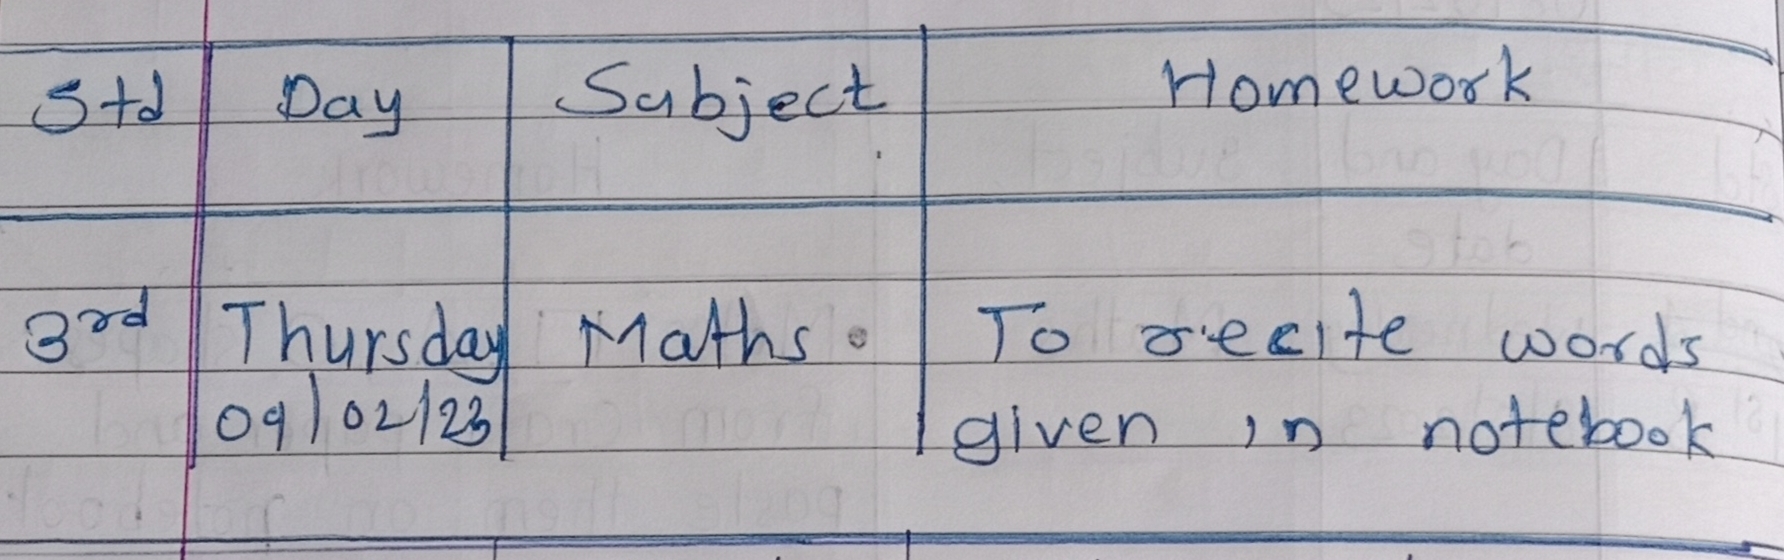 Std Day Subject Homework
3rd Thursday Maths. To recite words
09/02/23 given in notebook